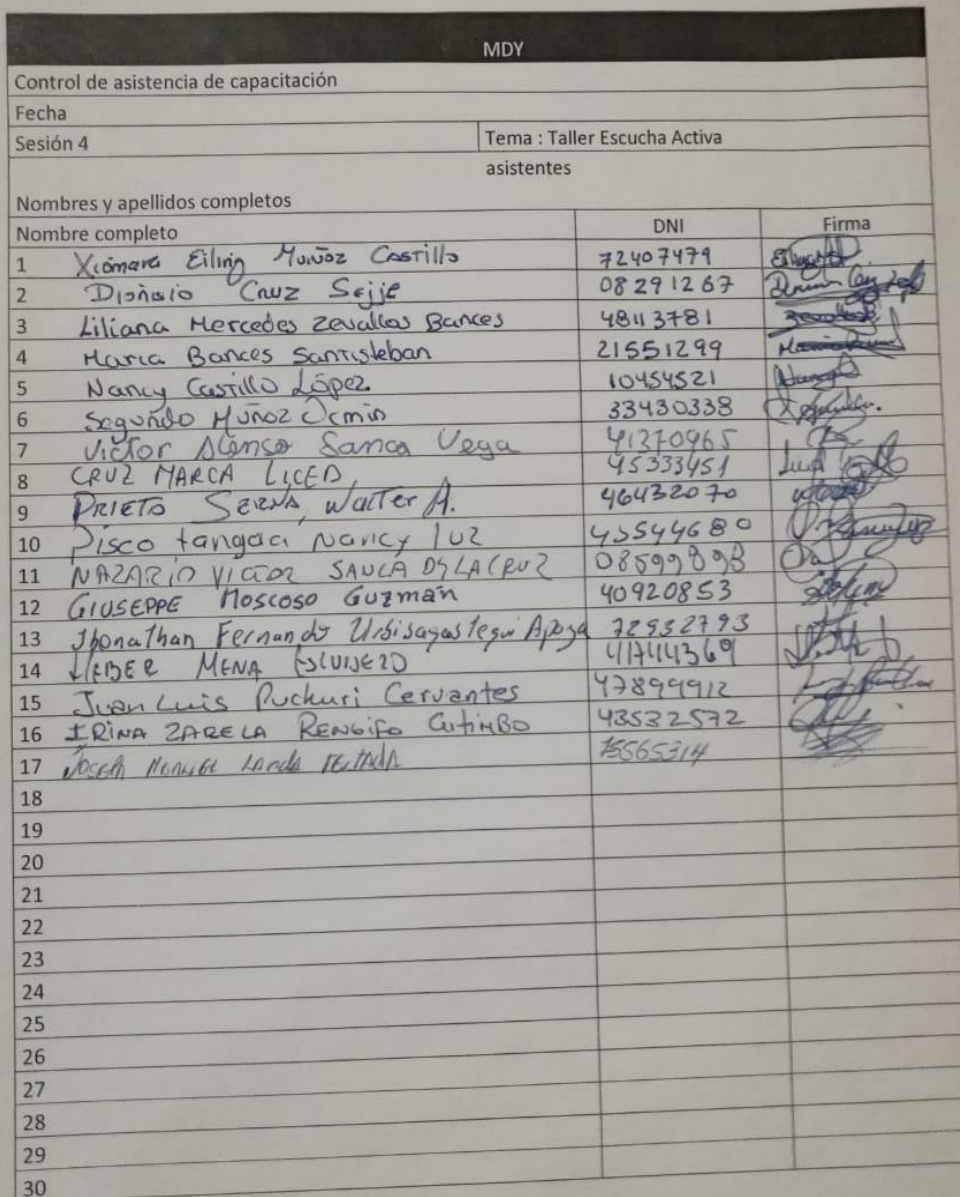 MDY
Control de asistencia de capacitación
Fecha
Sesión 4 Tema : Taller Escucha Activa
asistentes
Nombres y apellidos completos
Nombre completo DNI Firma
1 Xiomara Eilin Muñoz Castillo 72407479
2 Dionisio Cruz Sejje 08291267
3 Liliana Mercedes Zevallos Bances 48113781
4 Maria Bances Santisteban 21551299
5 Nancy Castillo López 10454521
6 Segundo Muñoz Ocmin 33430338
7 Victor Alonso Sanca Vega 41270965
8 CRUZ MARCA LICED 45333451
9 PRIETO SERNA, Walter A. 46432070
10 Pisco tangoa Nancy luz 43544680
11 NAZARIO VICTOR SAUCA DE LA CRUZ 08599898
12 GIUSEPPE Moscoso Guzmán 40920853
13 Jhonathan Fernando Urbisagastegui Apaza 72932793
14 HEBER MENA 41744369
15 Juan Luis Puchuri Cervantes 47899912
16 IRINA ZARELA RENGIFO CUTIMBO 43532572
17 JOSEPH MANUEL LANDA
18
19
20
21
22
23
24
25
26
27
28
29
30